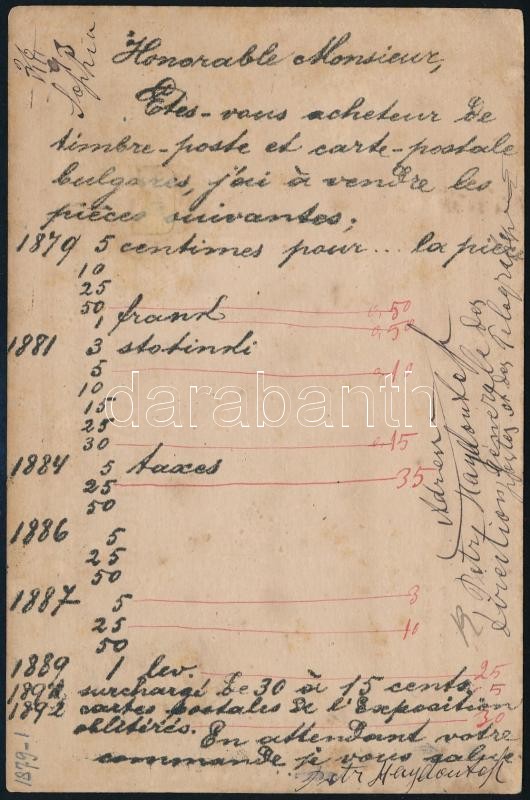 Sophia
Honorable Monsieur,
Êtes-vous acheteur de
timbre-poste et carte-postale
bulgares, j'ai à vendre les
pièces suivantes;
1879 5 centimes pour ... la pièc
10
25
50 0,50
1 frank 0,50
1881 3 stotinki
5 0,10
10
15
25
30 0,15
1884 5 taxes
25 35
50
1886 5
25
50
1887 5 3
25 10
50
1889 1 lev. 25
1892 surchargé de 30 à 15 cents, 5
1892 cartes postales de l'Exposition
oblitérés. 30
En attendant votre
commande je vous salue
Petr Haydoutoff
Petry Haydoutoff
Direction Générale des
postes et des Télégraphes
1879-1
darabanth